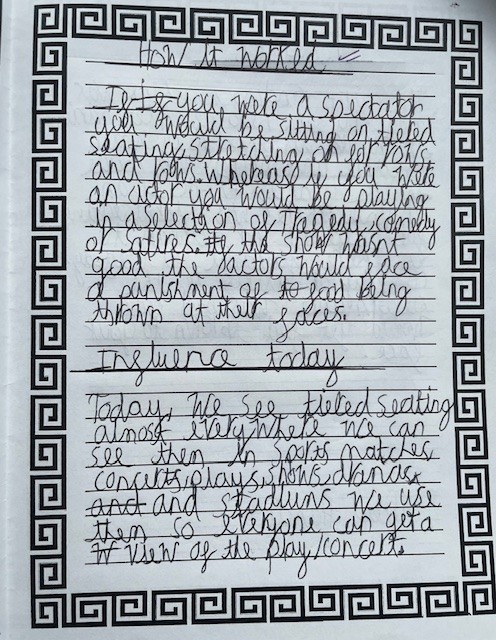 How it worked
If is you were a spectator
you would be sitting on tiered
seating, stretching on for rows
and rows. Whereas if you were
an actor you would be playing
in a selection of Tragedy, comedy
or satires. If the show wasnt
good the actors would face
a punishment of to food being
thrown at their faces.
Influence today
Today, we see tiered seating
almost everywhere we can
see them in sports matches,
concerts, plays, shows, dramas,
and and stadiums we use
them so everyone can get a
view of the play/concert.